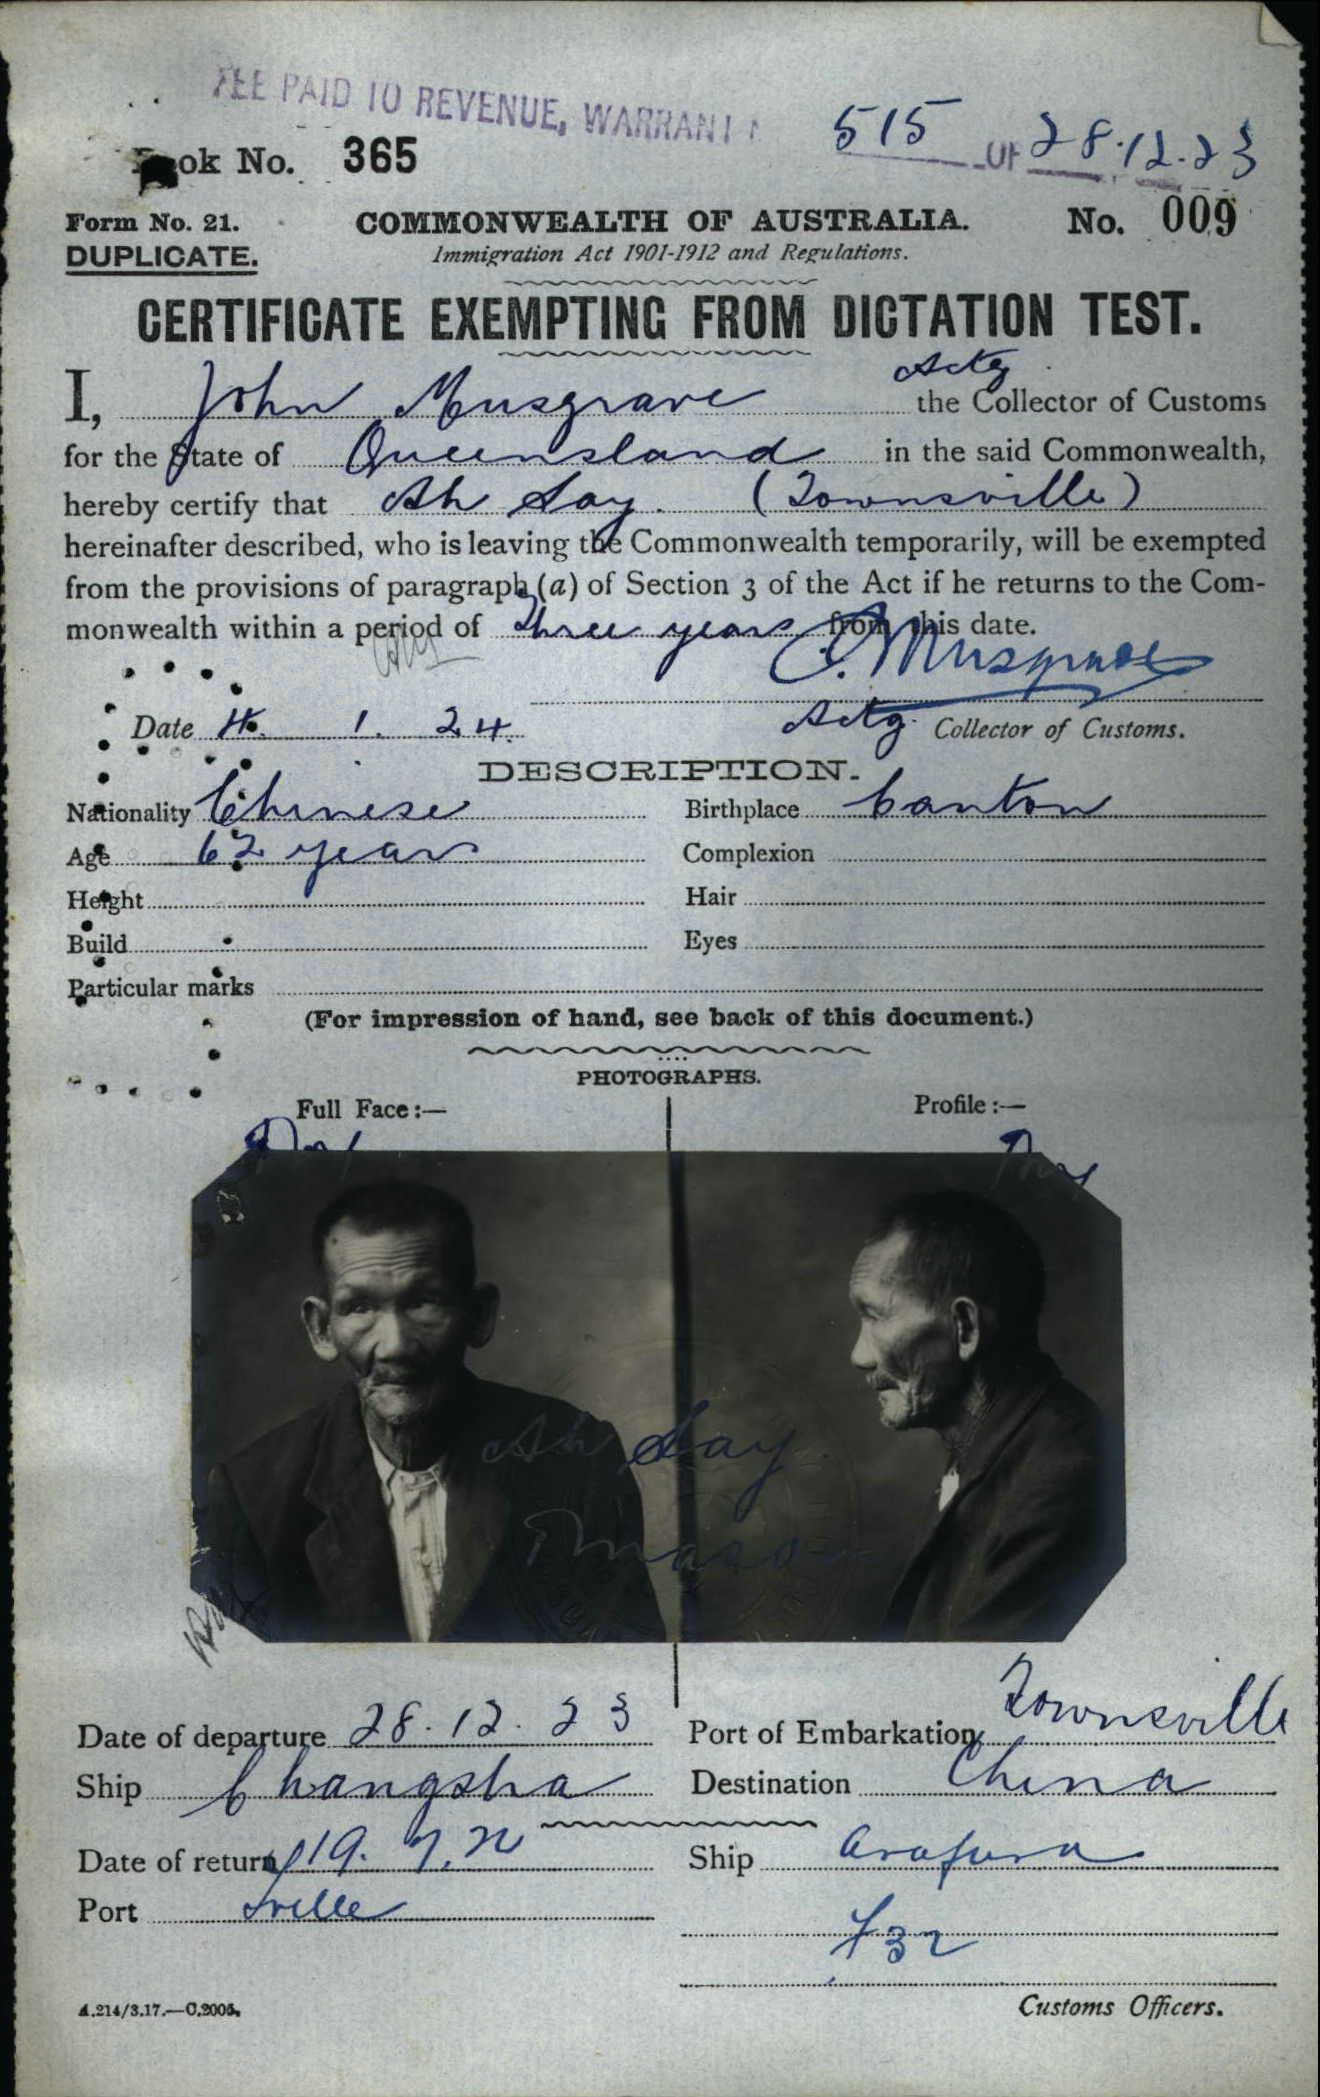 FEE PAID TO REVENUE, WARRANT 515 OF 28.12.23
Book No. 365
Form No. 21. COMMONWEALTH OF AUSTRALIA. No. 009
DUPLICATE. Immigration Act 1901-1912 and Regulations.
CERTIFICATE EXEMPTING FROM DICTATION TEST.
Actg
I, John Musgrave the Collector of Customs
for the State of Queensland in the said Commonwealth,
hereby certify that Ah Say. (Townsville)
hereinafter described, who is leaving the Commonwealth temporarily, will be exempted
from the provisions of paragraph (a) of Section 3 of the Act if he returns to the Com-
monwealth within a period of Three years from this date.
J. Musgrave
Date 4. 1. 24. Actg. Collector of Customs.
DESCRIPTION.
Nationality Chinese Birthplace Canton
Age 62 years Complexion
Height Hair
Build Eyes
Particular marks
(For impression of hand, see back of this document.)
PHOTOGRAPHS.
Full Face:— Profile:—
Ah Say
Date of departure 28.12.23 Port of Embarkation Townsville
Ship Changsha Destination China
Date of return 19. 7. Ship Arafura
Port Tville
Customs Officers.
A.214/3.17.—C.2005.